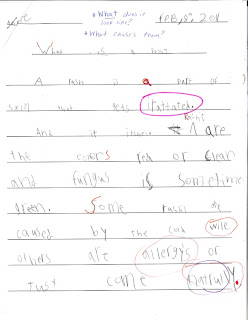 • What does it look like?
• What causes them?
What is a rash
A rash is a part of
skin that gets irattated.
And it
are
the colors red or clean
and fungus is sometime
green. Some rashs are
caused by the
others are allergys or
just come natfully.